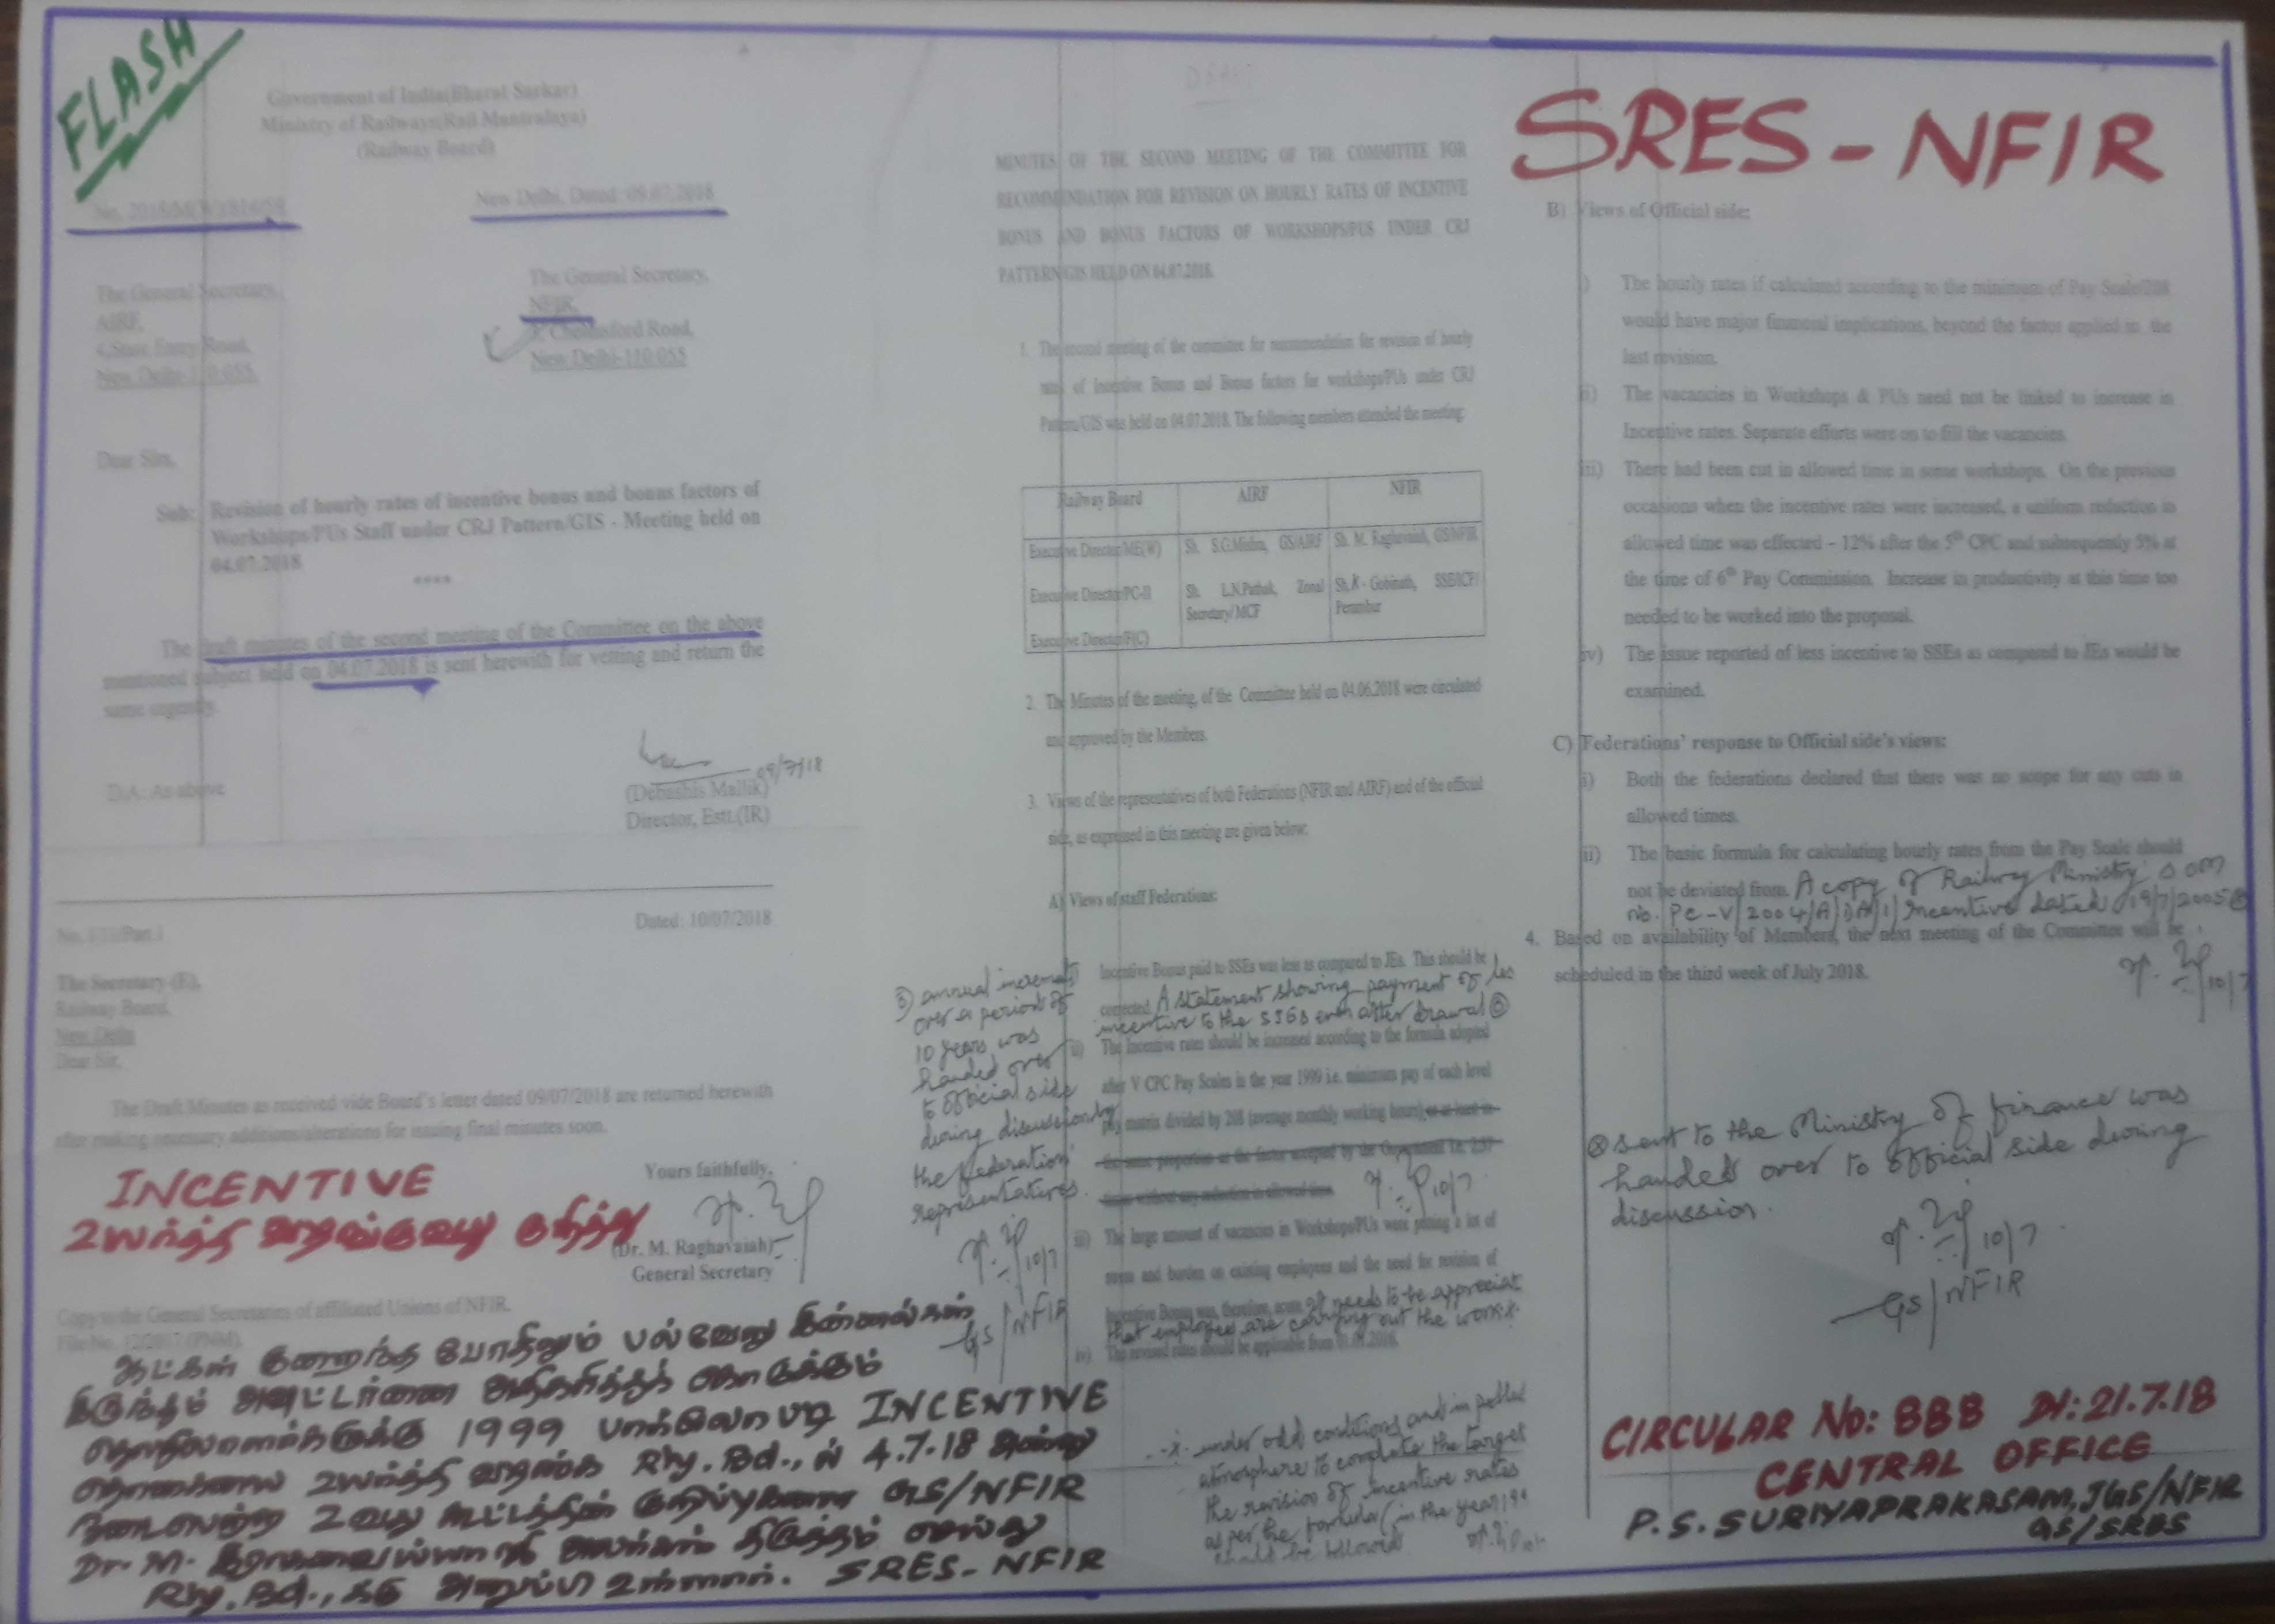 FLASH
Government of India(Bharat Sarkar)
Ministry of Railways(Rail Mantralaya)
(Railway Board)
New Delhi, Dated: 09.07.2018
The General Secretary,
AIRF,
4,State Entry Road,
New Delhi-110 055.
The General Secretary,
NFIR,
3, Chelmsford Road,
New Delhi-110 055
Dear Sirs,
Sub: Revision of hourly rates of incentive bonus and bonus factors of
Workshops/PUs Staff under CRJ Pattern/GIS - Meeting held on
04.07.2018
****
The draft minutes of the second meeting of the Committee on the above
mentioned subject held on 04.07.2018 is sent herewith for vetting and return the
same urgently.
D.A: As above
09/7/18
(Debashis Mallik)
Director, Estt.(IR)
Dated: 10/07/2018
The Secretary (E),
Railway Board,
New Delhi
Dear Sir,
The Draft Minutes as received vide Board's letter dated 09/07/2018 are returned herewith
after making necessary additions/alterations for issuing final minutes soon.
Yours faithfully,
(Dr. M. Raghavaiah)
General Secretary
Copy to the General Secretaries of affiliated Unions of NFIR.
File No. 12/2017 (PNM).
INCENTIVE
உயர்த்தி வழங்குவது குறித்து
ஆட்கள் குறைந்த போதிலும் பல்வேறு இன்னல்கள்
இருந்தும் அவுட்டர்னை அதிகரித்துக் கொடுக்கும்
தொழிலாளர்களுக்கு 1999 பார்முலா படி INCENTIVE
தொகையை உயர்த்தி வழங்க Rly. Bd., ல் 4.7.18 அன்று
நடைபெற்ற 2வது கூட்டத்தின் குறிப்புகளை GS/NFIR
Dr. M. இராகவைய்யா ஜி அவர்கள் திருத்தம் செய்து
Rly. Bd., க்கு அனுப்பி உள்ளார். SRES-NFIR
MINUTES OF THE SECOND MEETING OF THE COMMITTEE FOR
RECOMMENDATION FOR REVISION ON HOURLY RATES OF INCENTIVE
BONUS AND BONUS FACTORS OF WORKSHOPS/PUS UNDER CRJ
PATTERN/GIS HELD ON 04.07.2018.
1. The second meeting of the committee for recommendation for revision of hourly
rates of Incentive Bonus and Bonus factors for workshops/PUs under CRJ
Pattern/GIS was held on 04.07.2018. The following members attended the meeting:
Railway Board AIRF NFIR
Executive Director/ME(W) Sh. S.G.Mishra, GS/AIRF Sh. M. Raghavaiah, GS/NFIR
Executive Director/PC-II Sh. L.N.Pathak, Zonal Secretary/MCF Sh. K. Gobinath, SSE/ICF/ Perambur
Executive Director/F(C)
2. The Minutes of the meeting, of the Committee held on 04.06.2018 were circulated
and approved by the Members.
3. Views of the representatives of both Federations (NFIR and AIRF) and of the official
side, as expressed in this meeting are given below:
A) Views of staff Federations:
Incentive Bonus paid to SSEs was less as compared to JEs. This should be
corrected. A statement showing payment of less
incentive to the SSEs even after drawal
annual increment
over a period of
10 years was
handed over
to official side
during discussion by
the federation
representatives.
10/7
GS/NFIR
ii) The Incentive rates should be increased according to the formula adopted
after V CPC Pay Scales in the year 1999 i.e. minimum pay of each level
pay matrix divided by 208 (average monthly working hours) or at least in
the same proportion as the factor accepted by the Government i.e. 2.57
times without any reduction in allowed time.
10/7
iii) The large amount of vacancies in Workshops/PUs were putting a lot of
stress and burden on existing employees and the need for revision of
Incentive Bonus was, therefore, acute. It needs to be appreciated
that employees are carrying out the work
iv) The revised rates should be applicable from 01.01.2016.
under odd conditions and in polluted
atmosphere to complete the target
the revision of incentive rates
as per the formula (in the year 1999
should be followed
SRES-NFIR
B) Views of Official side:
i) The hourly rates if calculated according to the minimum of Pay Scale/208
would have major financial implications, beyond the factor applied in the
last revision.
ii) The vacancies in Workshops & PUs need not be linked to increase in
Incentive rates. Separate efforts were on to fill the vacancies.
iii) There had been cut in allowed time in some workshops. On the previous
occasions when the incentive rates were increased, a uniform reduction in
allowed time was effected – 12% after the 5th CPC and subsequently 5% at
the time of 6th Pay Commission. Increase in productivity at this time too
needed to be worked into the proposal.
iv) The issue reported of less incentive to SSEs as compared to JEs would be
examined.
C) Federations' response to Official side's views:
i) Both the federations declared that there was no scope for any cuts in
allowed times.
ii) The basic formula for calculating hourly rates from the Pay Scale should
not be deviated from. A copy of Railway Ministry's OM
no. PC-V/2004/A/1/Incentive dated 19/7/2005
4. Based on availability of Members, the next meeting of the Committee will be
scheduled in the third week of July 2018.
10/7
sent to the Ministry of Finance was
handed over to official side during
discussion.
10/7
GS/NFIR
CIRCULAR No: 888 Dt: 21.7.18
CENTRAL OFFICE
P.S. SURIYAPRAKASAM, JGS/NFIR
GS/SRES